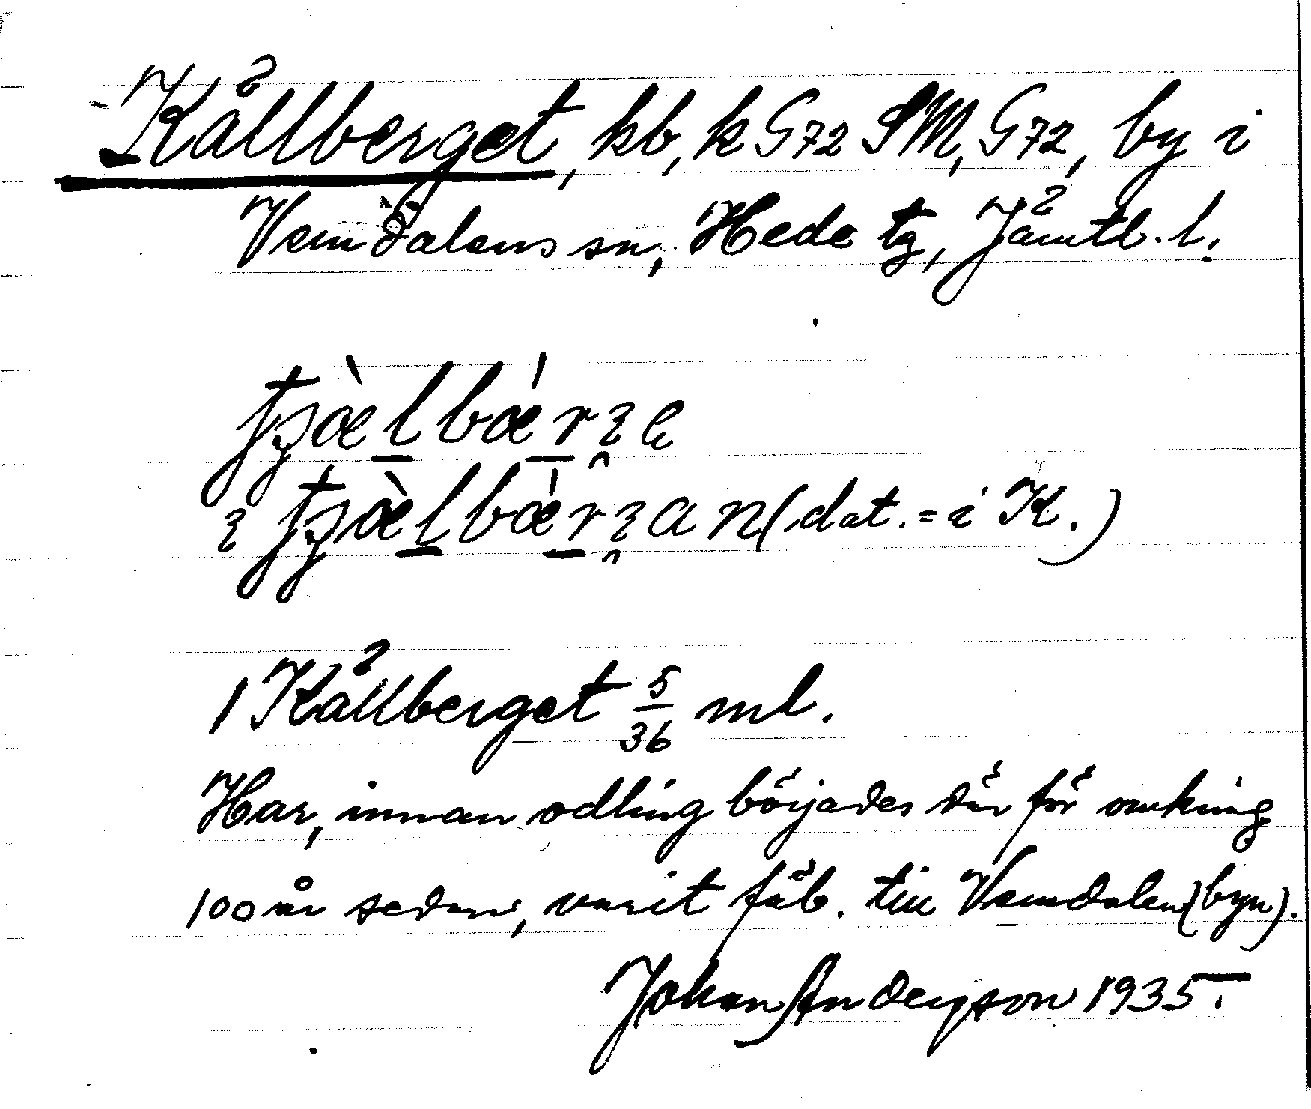 Källberget, kb, k G72 SM, G72, by i
Vemdalens sn, Hede tg, Jämtl. l.
(dat. = i K.)
1 Källberget 5/36 ml.
Har, innan odling börjades där för omkring
100 år sedan, varit fäb. till Vemdalen (byn).
Johan Anderson 1935.